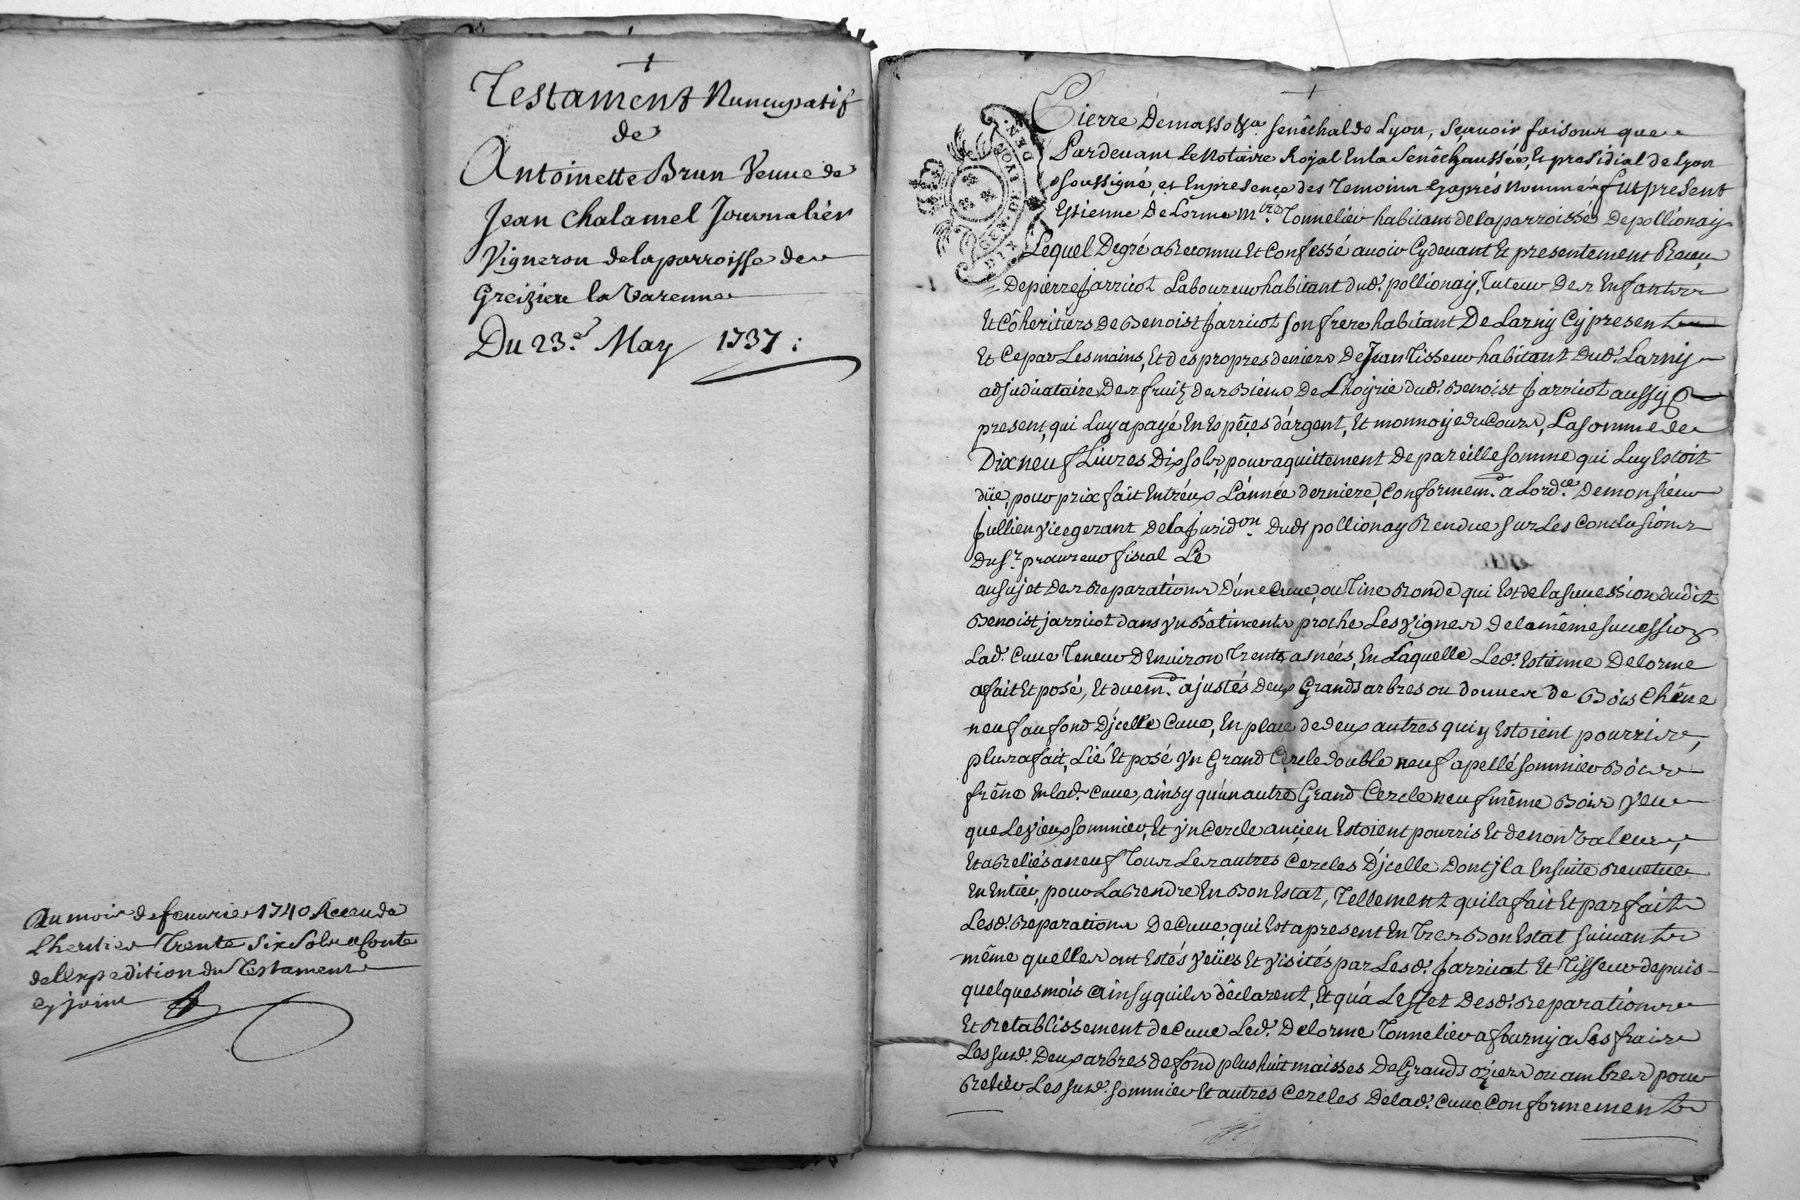 Testament Nuncupatif
de
Antoinette Brun Veuve de
Jean Chalamel Journalier
Vigneron de la parroisse de
Greizieu la Varenne
Du 23.e May 1737 :
Au mois de feuvrier 1740 Receu de
L'heritier Trente Six Sols a Conte
de l'expedition du Testament
cy joint
Pierre Demasso sénéchal de Lyon, sçavoir faisons que
Pardevant Le Notaire Royal En la Sénéchaussée, Et présidial de Lyon
soussigné, et En presence des Temoins Cyaprés Nommés fut présent
Estienne Delorme m.tre Tonnelier habitant de la parroisse De pollionay
Lequel De gré a Reconnu Et Confessé avoir Cydevant Et presentement Receu
De pierre Jarricot Laboureur habitant dud. pollionay, Tuteur Des Enfants
Et Cohéritiers De Benoist Jarricot son frere habitant De Larny Cy present
Et Ce par Les mains, Et des propres deniers De Jean Tisseur habitant Dud. Larny
adjudicataire Des fruitz des Biens De L'hoyrie dud. Benoist Jarricot aussy
present, qui Luy a payé En Espêces d'argent, Et monnoye de Cours, La somme de
Dix neuf Livres Dix sols, pour aquittement De pareille somme qui Luy Estoit
düe, pour prix fait Entréux L'année derniere, Conformem.t a Lord.ce De monsieur
Jullien vicegerant De la Jurid.on Dudt pollionay Rendue sur Les Conclusions
Du S.r procureur fiscal Le
au sujet Des Reparations D'une Cuve, ou Tine Ronde qui Est de la succession dudit
Benoist jarricot dans un Bâtiment proche Les vignes De la même succession
Lad. Cuve Teneur D'Environ Trente asnées, En Laquelle Led. Estienne Delorme
a fait Et posé, Et duem.t ajustés Deux Grands arbres ou douves de Bois Chêne
neuf au fond D'jcelle Cuve, En place de deux autres qui y Estoient pourries,
plus a fait, Lié Et posé un Grand Cercle double neuf apellé sommier Bois
frêne En lad. Cuve, ainsy qu'un autre Grand Cercle neuf même Bois veu
que Le vieux sommier, Et un Cercle ancien Estoient pourris Et de non valeur,
Et a Reliés a neuf Tous Les autres Cercles D'jcelle Dont jl a Ensuite Revetue
En Entier, pour La Rendre En Bon Estat, Tellement qu'il a fait Et parfait
Lesd. Reparations De Cuve, qui Est apresent En Tres Bon Estat suivant
même quelles ont Estés veües Et visités par Lesd. Jarricot Et Tisseur depuis
quelques mois ainsy quils déclarent, Et qu'a L'effet Desd. Reparations
Et Retablissement de Cuve Led. Delorme Tonnelier a fourny a Ses frais
Les sud. Deux arbres de fond plus huit maisses De Grands oziers ou ambres pour
Relier Les sud. sommier Et autres Cercles De lad. Cuve Conformement